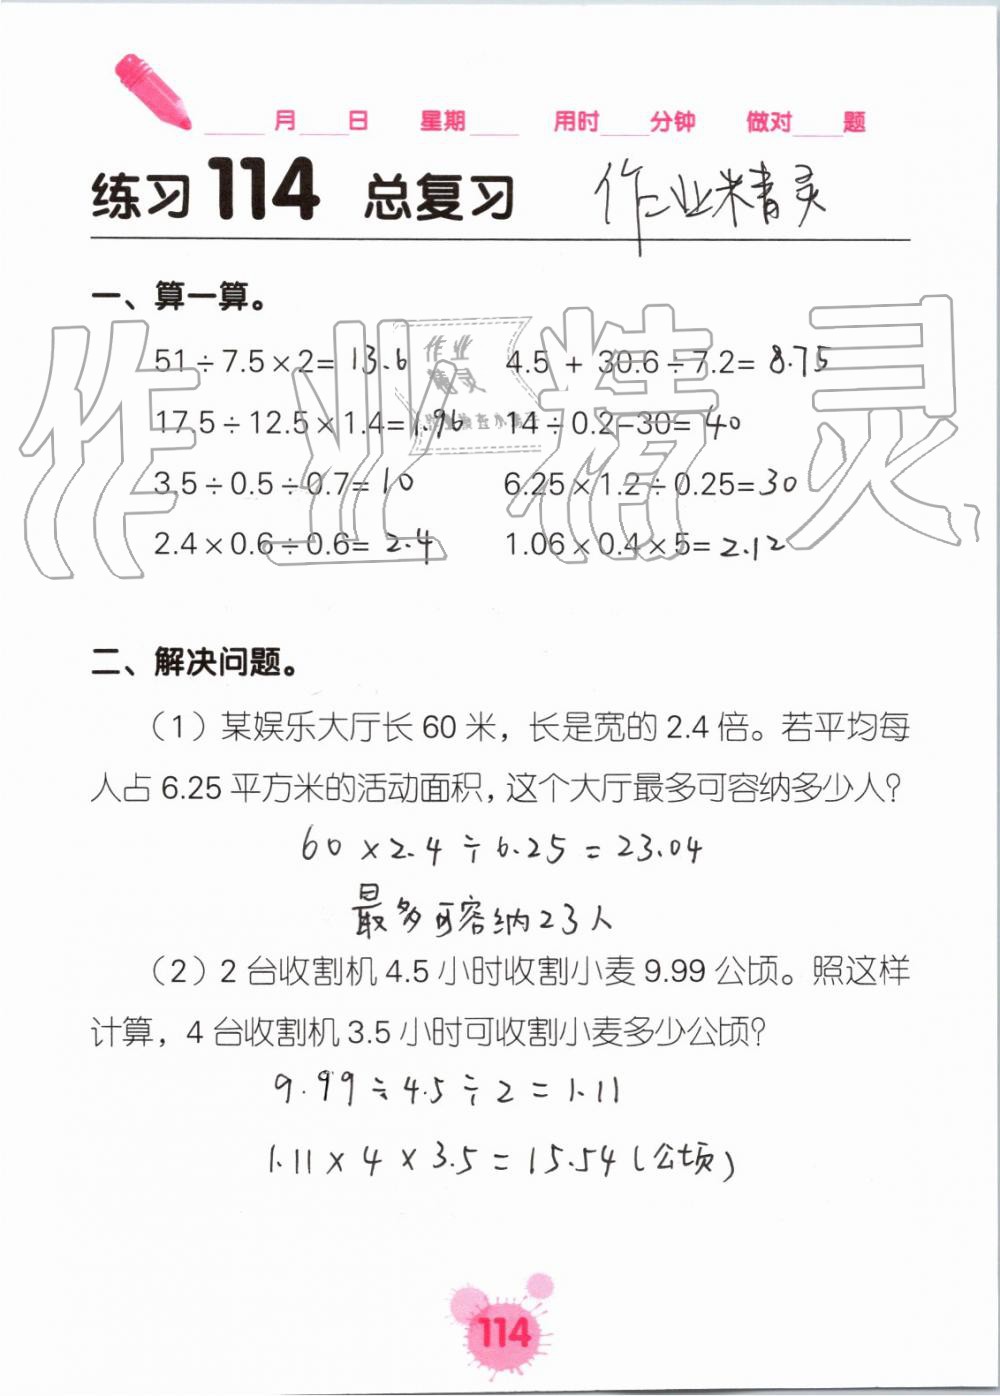 ____月____日 星期____ 用时____分钟 做对____题
练习114 总复习 作业精灵
一、算一算。
51÷7.5×2=13.6 4.5 + 30.6÷7.2=8.75
17.5÷12.5×1.4=1.96 14÷0.2-30=40
3.5÷0.5÷0.7=10 6.25×1.2÷0.25=30
2.4×0.6÷0.6=2.4 1.06×0.4×5=2.12
作业精灵
作业
精灵
二、解决问题。
（1）某娱乐大厅长60米，长是宽的2.4倍。若平均每
人占6.25平方米的活动面积，这个大厅最多可容纳多少人？
60×2.4÷6.25=23.04
最多可容纳23人
（2）2台收割机4.5小时收割小麦9.99公顷。照这样
计算，4台收割机3.5小时可收割小麦多少公顷？
9.99÷4.5÷2=1.11
1.11×4×3.5=15.54(公顷)
114